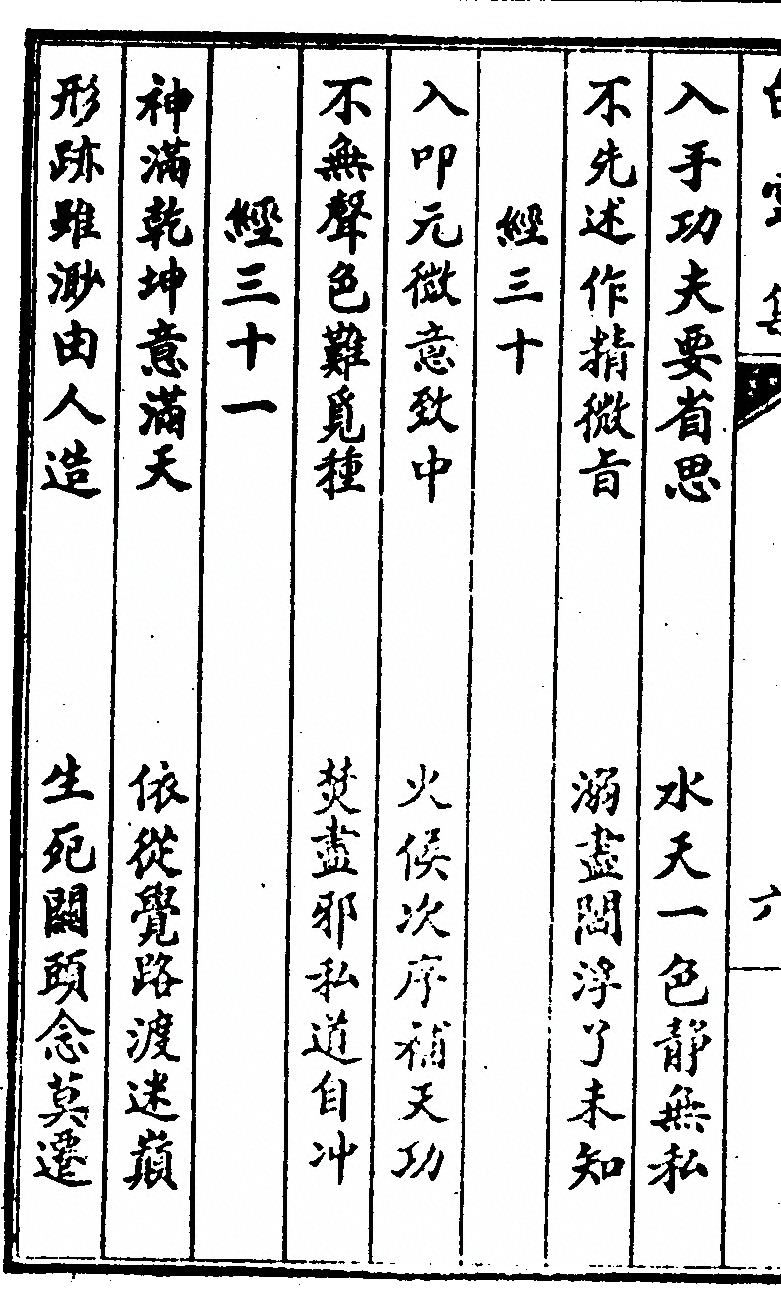 入手功夫要省思　水天一色靜無私
不先述作精微旨　溺盡閻浮了未知
經三十
入叩元微意致中　火候次序補天功
不無聲色難覓種　焚盡邪私道自冲
經三十一
神滿乾坤意滿天　依從覺路渡迷巔
形跡雖渺由人造　生死關頭念莫遷